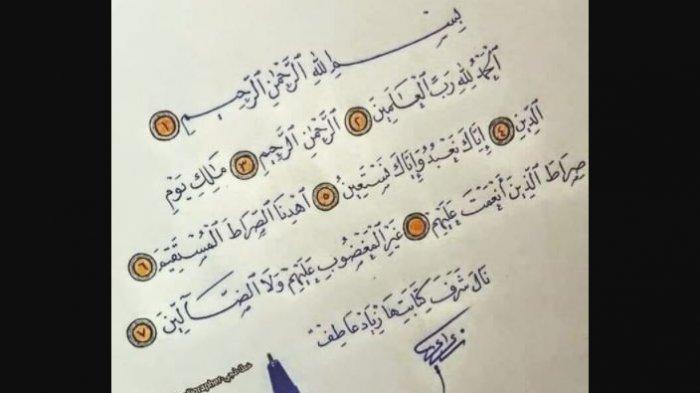 بِسْمِ اللهِ ٱلرَّحْمَٰنِ ٱلرَّحِيمِ ١
ٱلْحَمْدُ لِلَّهِ رَبِّ ٱلْعَٰلَمِينَ ٢ ٱلرَّحْمَٰنِ ٱلرَّحِيمِ ٣ مَٰلِكِ يَوْمِ
ٱلدِّينِ ٤ إِيَّاكَ نَعْبُدُ وَإِيَّاكَ نَسْتَعِينُ ٥ ٱهْدِنَا ٱلصِّرَاطَ ٱلْمُسْتَقِيمَ ٦
صِرَاطَ ٱلَّذِينَ أَنْعَمْتَ عَلَيْهِمْ غَيْرِ ٱلْمَغْضُوبِ عَلَيْهِمْ وَلَا ٱلضَّآلِّينَ ٧
نَالَ شَرَفَ كِتَابَتِهَا زِيَاد عَاطِفْ